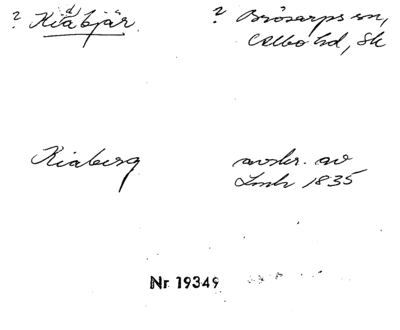 ? Kiabjär. ? Brösarps sn,
d
Albo hd, Sk
Kiaberg avskr. av
Lmh 1835
Nr 19349